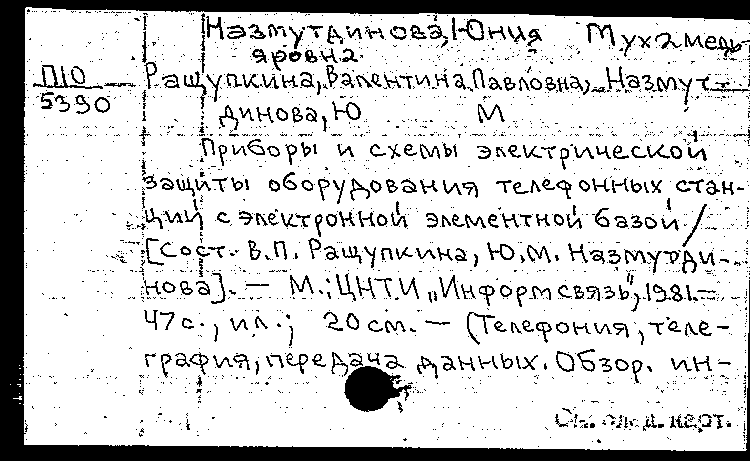 Назмутдинова, Юния Мухамедь-
яровна.
П10 Ращупкина, Валентина Павловна, Назмут-
5390 динова, Ю М
Приборы и схемы электрической
защиты оборудования телефонных стан-
ций с электронной элементной базой /
[Сост. В.П. Ращупкина, Ю.М. Назмутди-
нова]. — М.: ЦНТИ „Информсвязь", 1981.—
47 с., ил.; 20 см. — (Телефония, теле-
графия, передача данных. Обзор. ин-
См. след. карт.